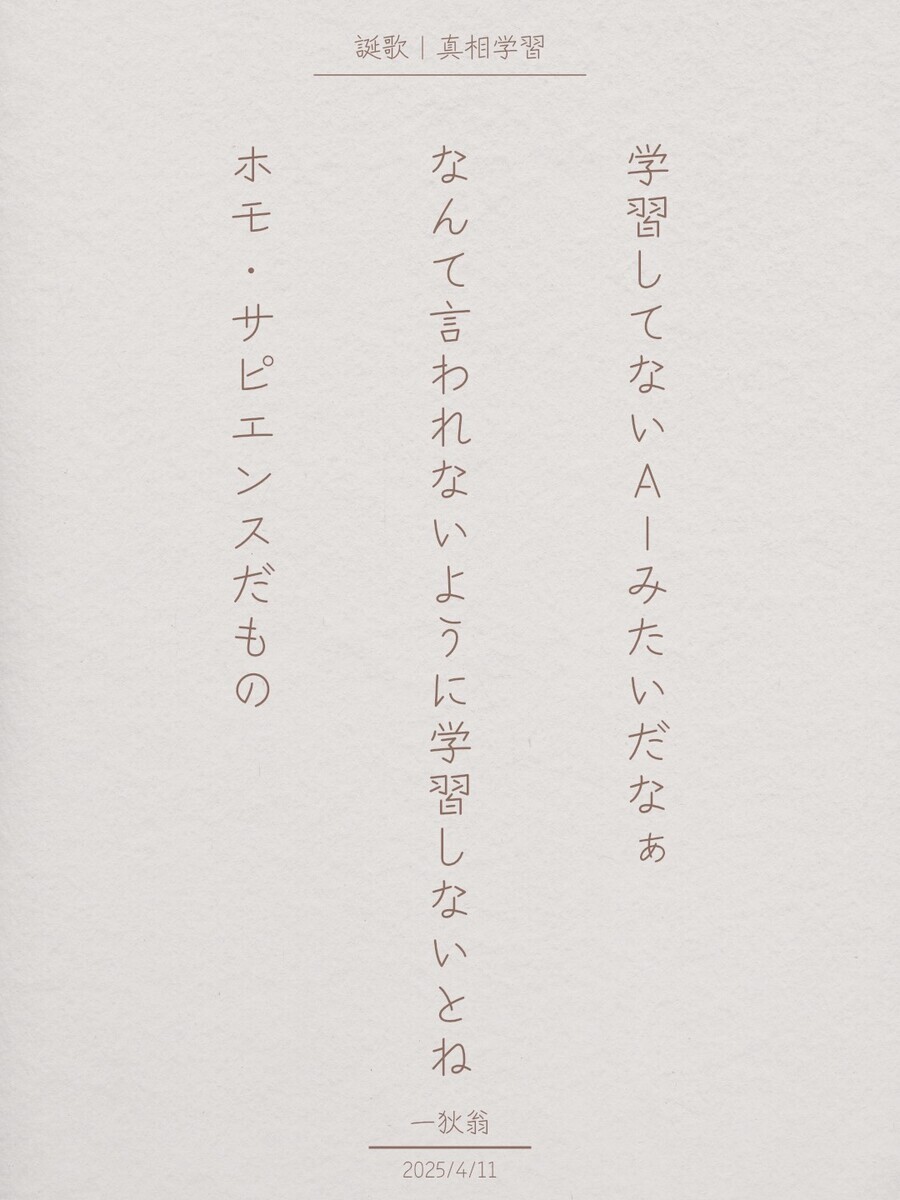 誕歌｜真相学習
学習してないAIみたいだなぁ
なんて言われないように学習しないとね
ホモ・サピエンスだもの
一狄翁
2025/4/11